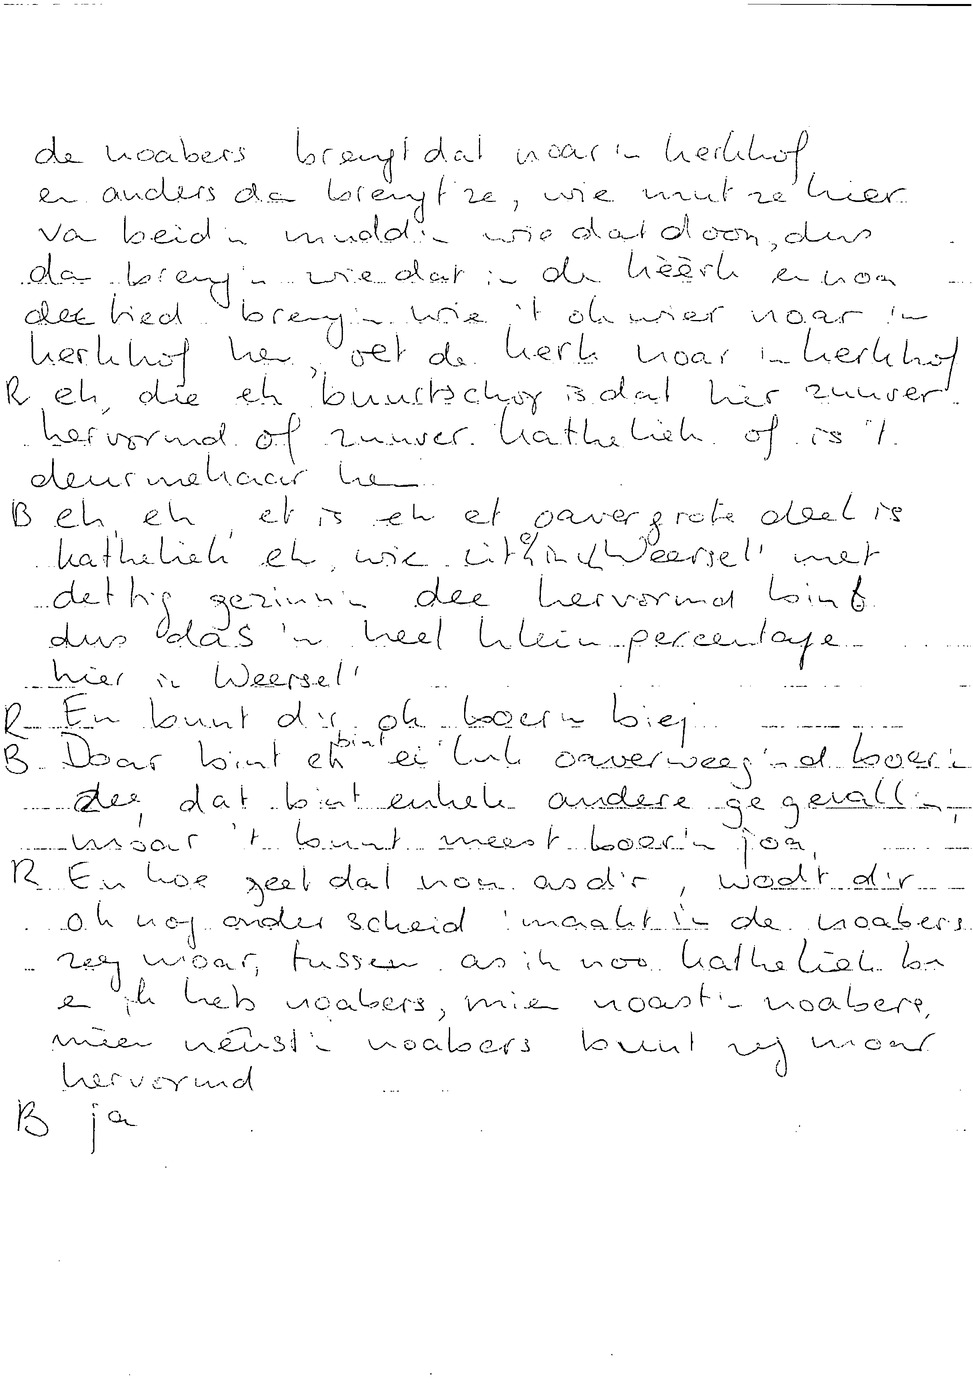 de noabers brengt dat noar 'n kerkhof
en anders da brengt ze, wie mut ze hier
va beid'n mudd'n wie dat doon, dus
da breng'n wie dat in de kèèrk en non
dee tied breng'n wie 't ok wier noar 'n
kerkhof hen, oet de kerk noar 'n kerkhof
R eh, die eh buurtschop is dat hier zuuver
hervormd of zuuver katheliek of is 't
deur mekaar hen
B eh, eh, et is eh et oavergrote deel is
katheliek eh, wie zit in Weersel' met
dettig gezinn'n dee hervormd bint
dus das 'n heel klein percentage
hier in Weersel'
R En bunt d'r ok boer'n biej
B Doar bint eh bint ei'luk oaverweeg'nd boer'n
dee, dat bint enkele andere gegevall'n,
moar 't bunt meest boer'n joa,
R En hoe geet dat non as d'r, wodt d'r
ok nog onderscheid 'maakt in de noabers
zeg moar, tussen as ik noo katheliek bn
en ik heb noabers, mien noast'n noabers,
mien neûst'n noabers bunt zeg moar
hervormd
B ja